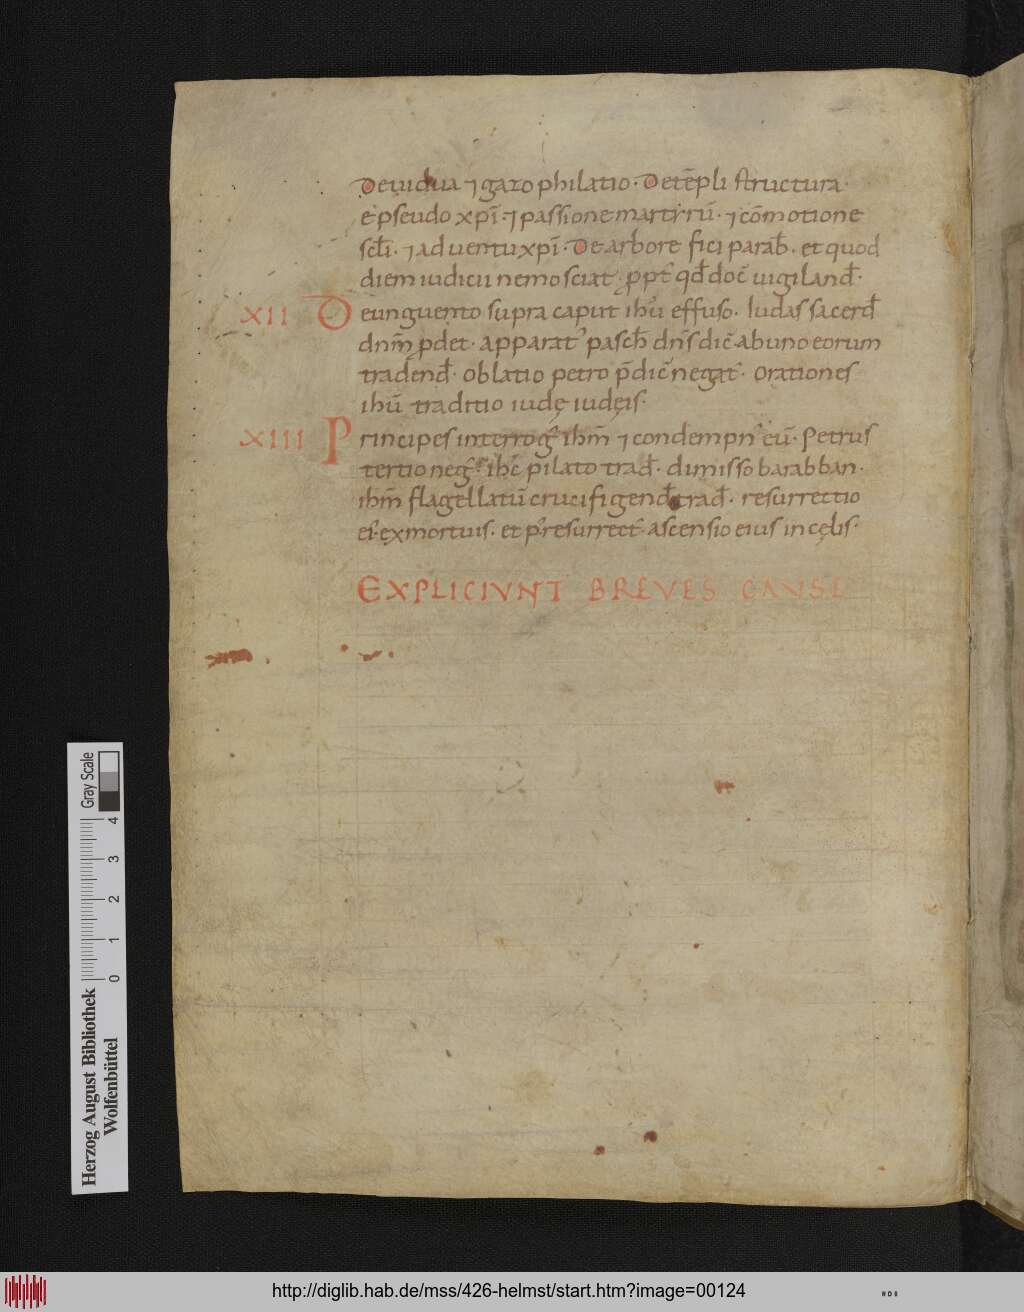 De uidua ⁊ gazophilatio. De tēpli structura.
& pseudo xpī. ⁊ passione martyrū. ⁊ cōmotione
scłi. ⁊ aduentu xpī. De arbore fici parab̄. et quod
diem iudicii nemo sciat ꝓpt̄ qđ doc̄ uigilanđ.
XII De unguento supra caput ihū effuso. Iudas sacerđ
dnm̄ ꝓdet. apparat᾿ pasch̄ dn̄s dic̄. ab uno eorum
tradenđ. oblatio petro p̄dic̄ negat᾿. orationes
ihū traditio iudę iudęis.
XIII Principes interrog᾿ ihm̄ ⁊ condempn᾿ eū. Petrus
tertio neg᾿. ihc̄ pilato trađ. dimisso barabban.
ihm̄ flagellatū crucifigenđ trađ. resurrectio
ei᾿. ex mortuis. et p᾿ resurrect᾿ ascensio eius in cęlis.
EXPLICIVNT BREVES CAVSE
Herzog August Bibliothek
Wolfenbüttel
0 1 2 3 4
Gray Scale
http://diglib.hab.de/mss/426-helmst/start.htm?image=00124